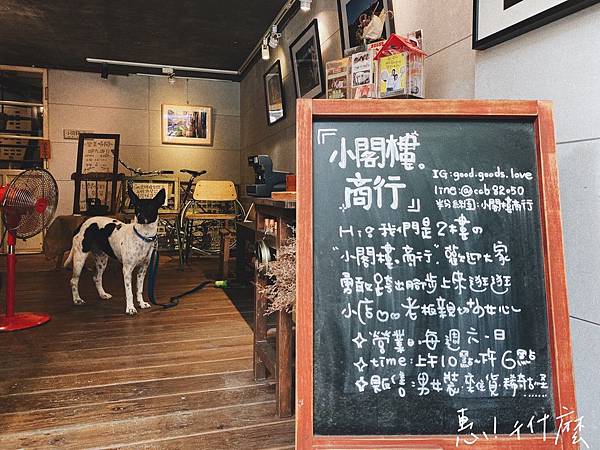 「小閣樓。
商行」
IG:good.goods.love
line:@cob82050
粉絲團:小閣樓商行
Hi。我們是2樓の
"小閣樓。商行"歡迎大家
勇敢踏出腳步上來逛逛
小店 老板親切女心
營業日:每週六、日
time:上午10點~下午6點
販售:男女裝.來貨.稀奇古屋
惠小千什麼